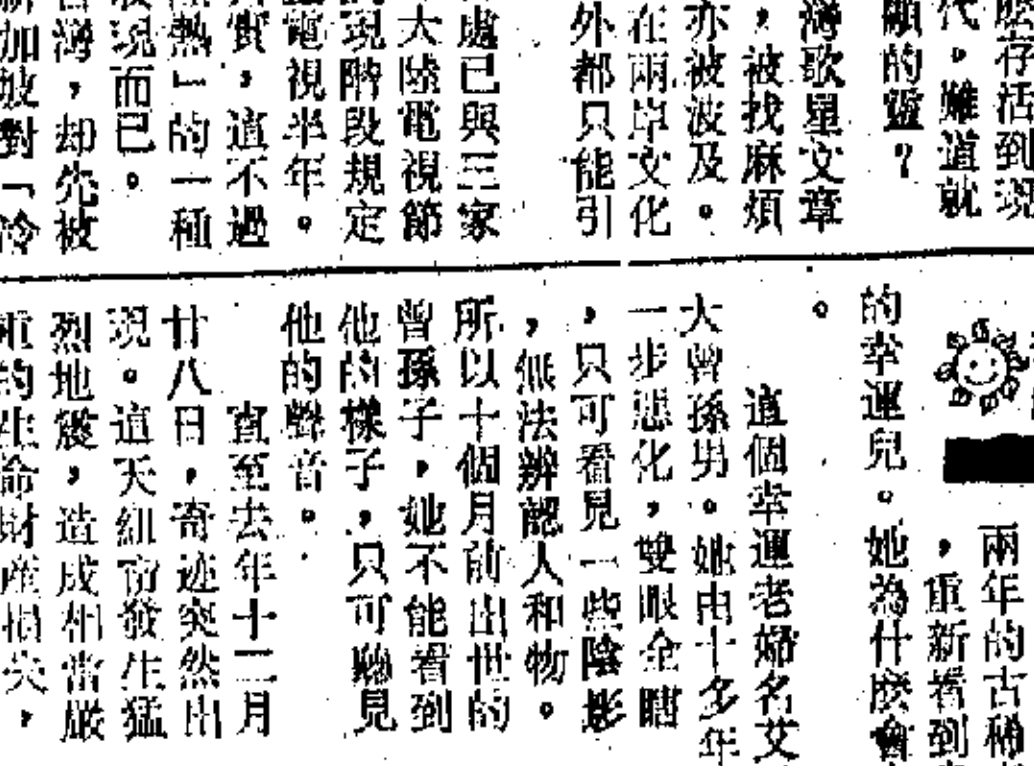 膽存活到現
代。難道就
顯的靈？
灣歌星文章
，被找麻煩
亦被波及。
在兩岸文化
外都只能引
處已與三家
大陸電視節
現階段規定
電視半年。
實，這不過
熱」的一種
現而已。
灣，却先被
新加坡對「冷
兩年的古稀
，重新看到
的幸運兒。她為什麼會
。
這個幸運老婦名艾
大曾孫男。她由十多年
一步惡化，雙眼全瞎
，只可看見一些陰影
，無法辨認人和物。
所以十個月前出世的
曾孫子，她不能看到
他的樣子，只可聽見
他的聲音。
直至去年十二月
廿八日，奇迹突然出
現。這天紐省發生猛
烈地震，造成相當嚴
重的生命財產損失，